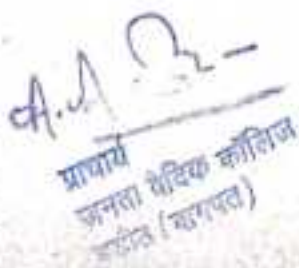 प्राचार्य
जनता वैदिक कॉलिज
बड़ौत (बागपत)